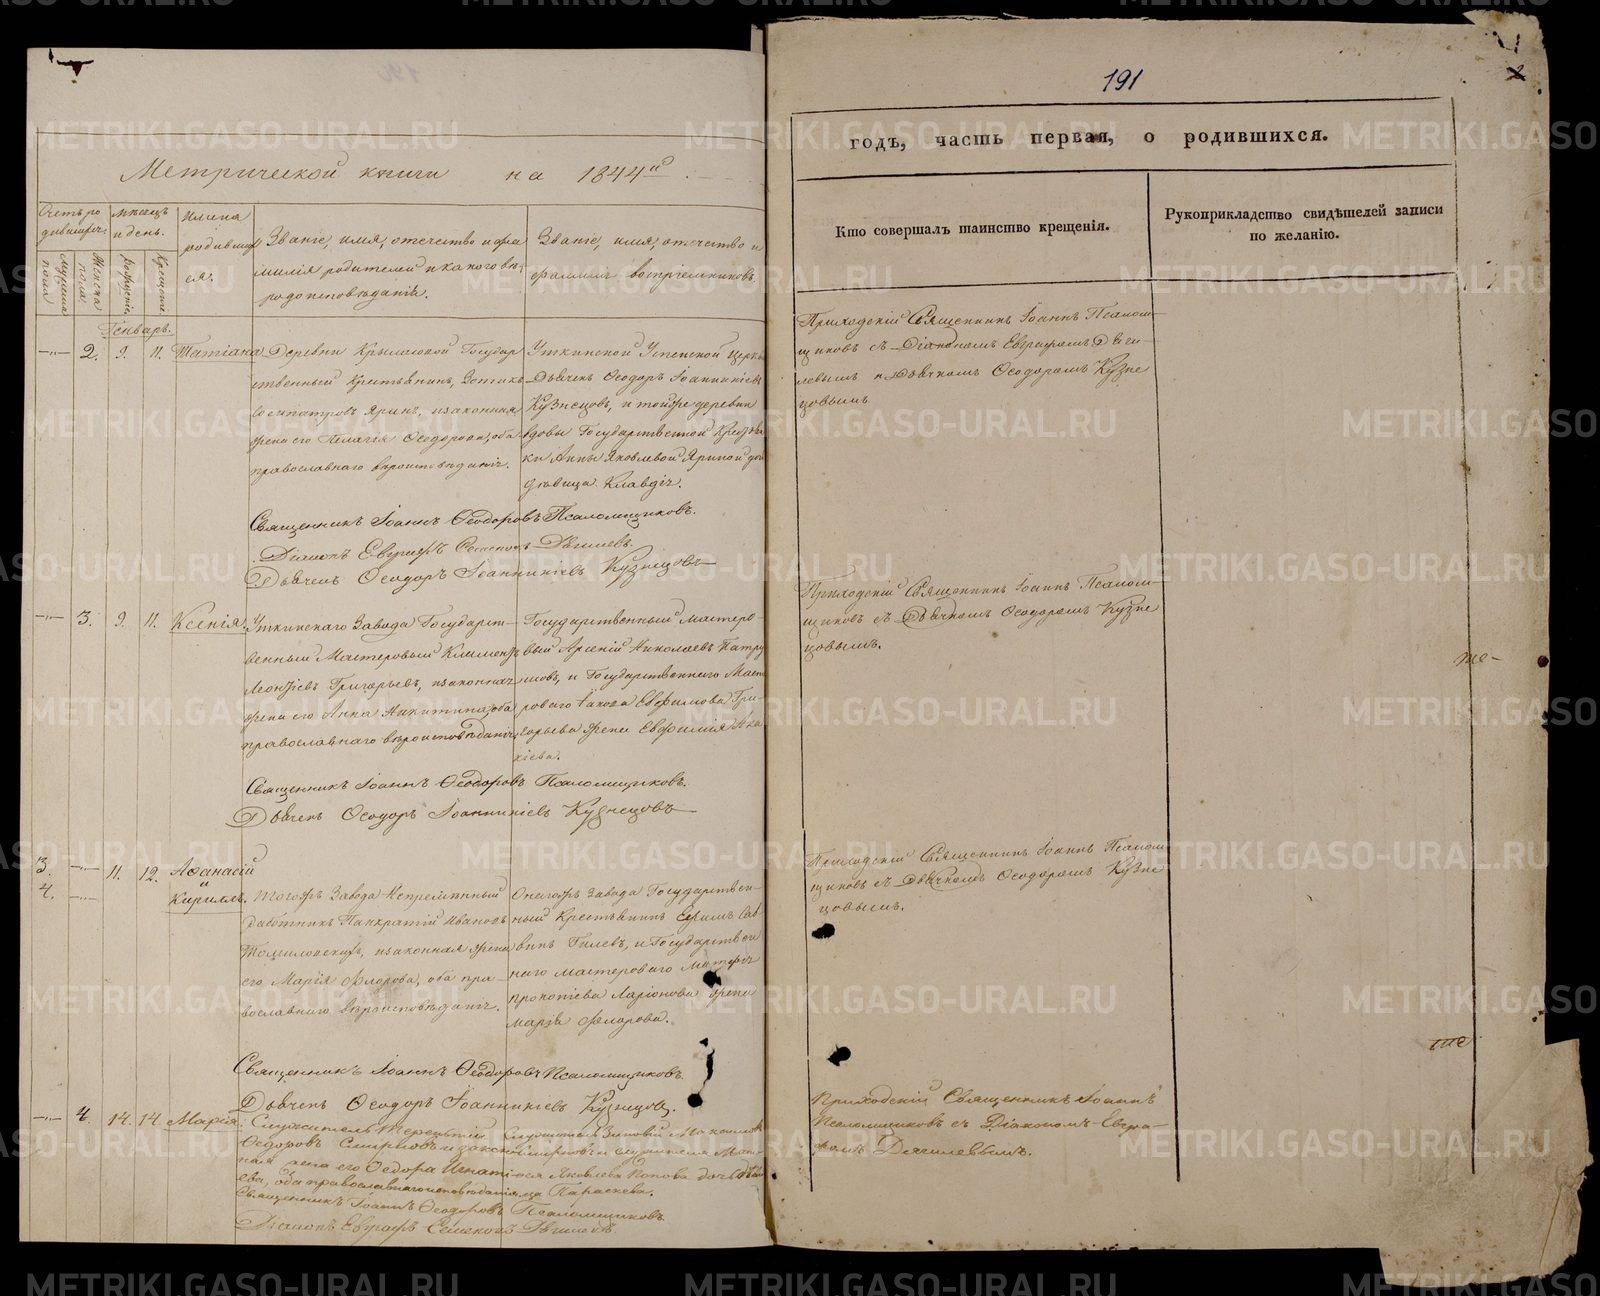 191
2
Метрической книги на 1844й
годъ, часть первая, о родившихся.
Счетъ ро
дившихся.
Мѣсяцъ
и день.
Имена
родивших
ся.
Званіе, имя, отечество и фа
милія родителей и какого вѣ-
роисповѣданія.
Званіе, имя, отечество и
фамилія воспріемниковъ
Мужеска
пола
Женска
пола.
рожденія.
Крещенія
Кто совершалъ таинство крещенія.
Рукоприкладство свидѣтелей записи
по желанію.
Генварь.
2. 9. 11. Татіана
Деревни Крыласовой Государ
ственный Крестьянинъ,
Яринъ, и законная
жена его Пелагія Ѳеодорова, оба
православнаго вѣроисповѣданія.
Уткинской Успенской церкви
Дьячекъ Ѳеодоръ Іоанникіевъ
Кузнецовъ, и тойже деревни
вдовы Государственной Крестьян
ки Анны Яковлевой Яриной дочь
дѣвица Клавдія.
Приходскій Священникъ Іоаннъ Псалом-
щиковъ съ Діакономъ Евграфомъ Дяги-
левымъ и Дьячкомъ Ѳеодоромъ Кузне
цовымъ
Священникъ Іоаннъ Ѳеодоровъ Псаломщиковъ.
Діаконъ Евграфъ Семеновъ Дягилевъ.
Дьячекъ Ѳеодоръ Іоанникіевъ Кузнецовъ
3. 9. 11. Ксенія.
Уткинскаго Завода Государст-
венный Мастеровый Климентъ
Леонтіевъ Григорьевъ, и законная
жена его Анна Никитина, оба
православнаго вѣроисповѣданія.
Государственный мастеро-
вый Арсеній Николаевъ Патру
шовъ, и Государственнаго Масте
роваго Іакова Евфимова Гри-
горьева жена Евфимія
кіева.
Приходскій Священникъ Іоаннъ Псалом-
щиковъ съ Дьячкомъ Ѳеодоромъ Кузне
цовымъ.
те-
Священникъ Іоаннъ Ѳеодоровъ Псаломщиковъ.
Дьячекъ Ѳеодоръ Іоанникіевъ Кузнецовъ
3. 11. 12. Аѳанасій
и
4. Кириллъ.
Тогожъ Завода Непремѣнный
работникъ Панкратій Ивановъ
Томиловскихъ, и законная жена
его Марія Флорова, оба пра-
вославнаго вѣроисповѣданія.
Онагожъ Завода Государствен-
ный Крестьянинъ Ефимъ Сав
винъ Гилевъ, и Государствен
наго мастероваго Матфія
Прокопіева Ларіонова жена
Марія Флорова.
Приходскій Священникъ Іоаннъ Псалом
щиковъ съ Дьячкомъ Ѳеодоромъ Кузне
цовымъ.
те
Священникъ Іоаннъ Ѳеодоровъ Псаломщиковъ.
Дьячекъ Ѳеодоръ Іоанникіевъ Кузнецов.
4. 14. 14. Марія
Служитель Терентій
Ѳедоровъ Смирновъ и закон
ная жена его Ѳедора Игнаті-
ева, оба православнаго исповѣданія
Служитель Зиновій Максимов
Смирновъ и служителя
Яковлева Попова дочь дѣви
ца Параскева.
Приходскій Священникъ Іоаннъ
Псаломщиковъ съ Діакономъ Евгра-
фомъ Дягилевымъ.
Священникъ Іоаннъ Ѳеодоровъ Псаломщиковъ
Діаконъ Евграфъ Семеновъ Дягилевъ.
METRIKI.GASO-URAL.RU